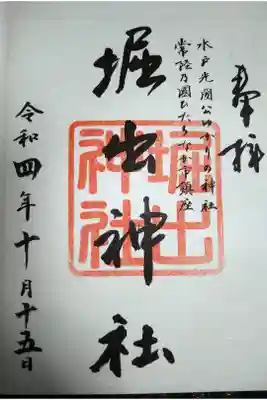 奉拝
水戸光圀公ゆかりの神社
常陸乃國ひたちなか市鎮座
堀出神社
堀出
神社
令和四年十月十五日